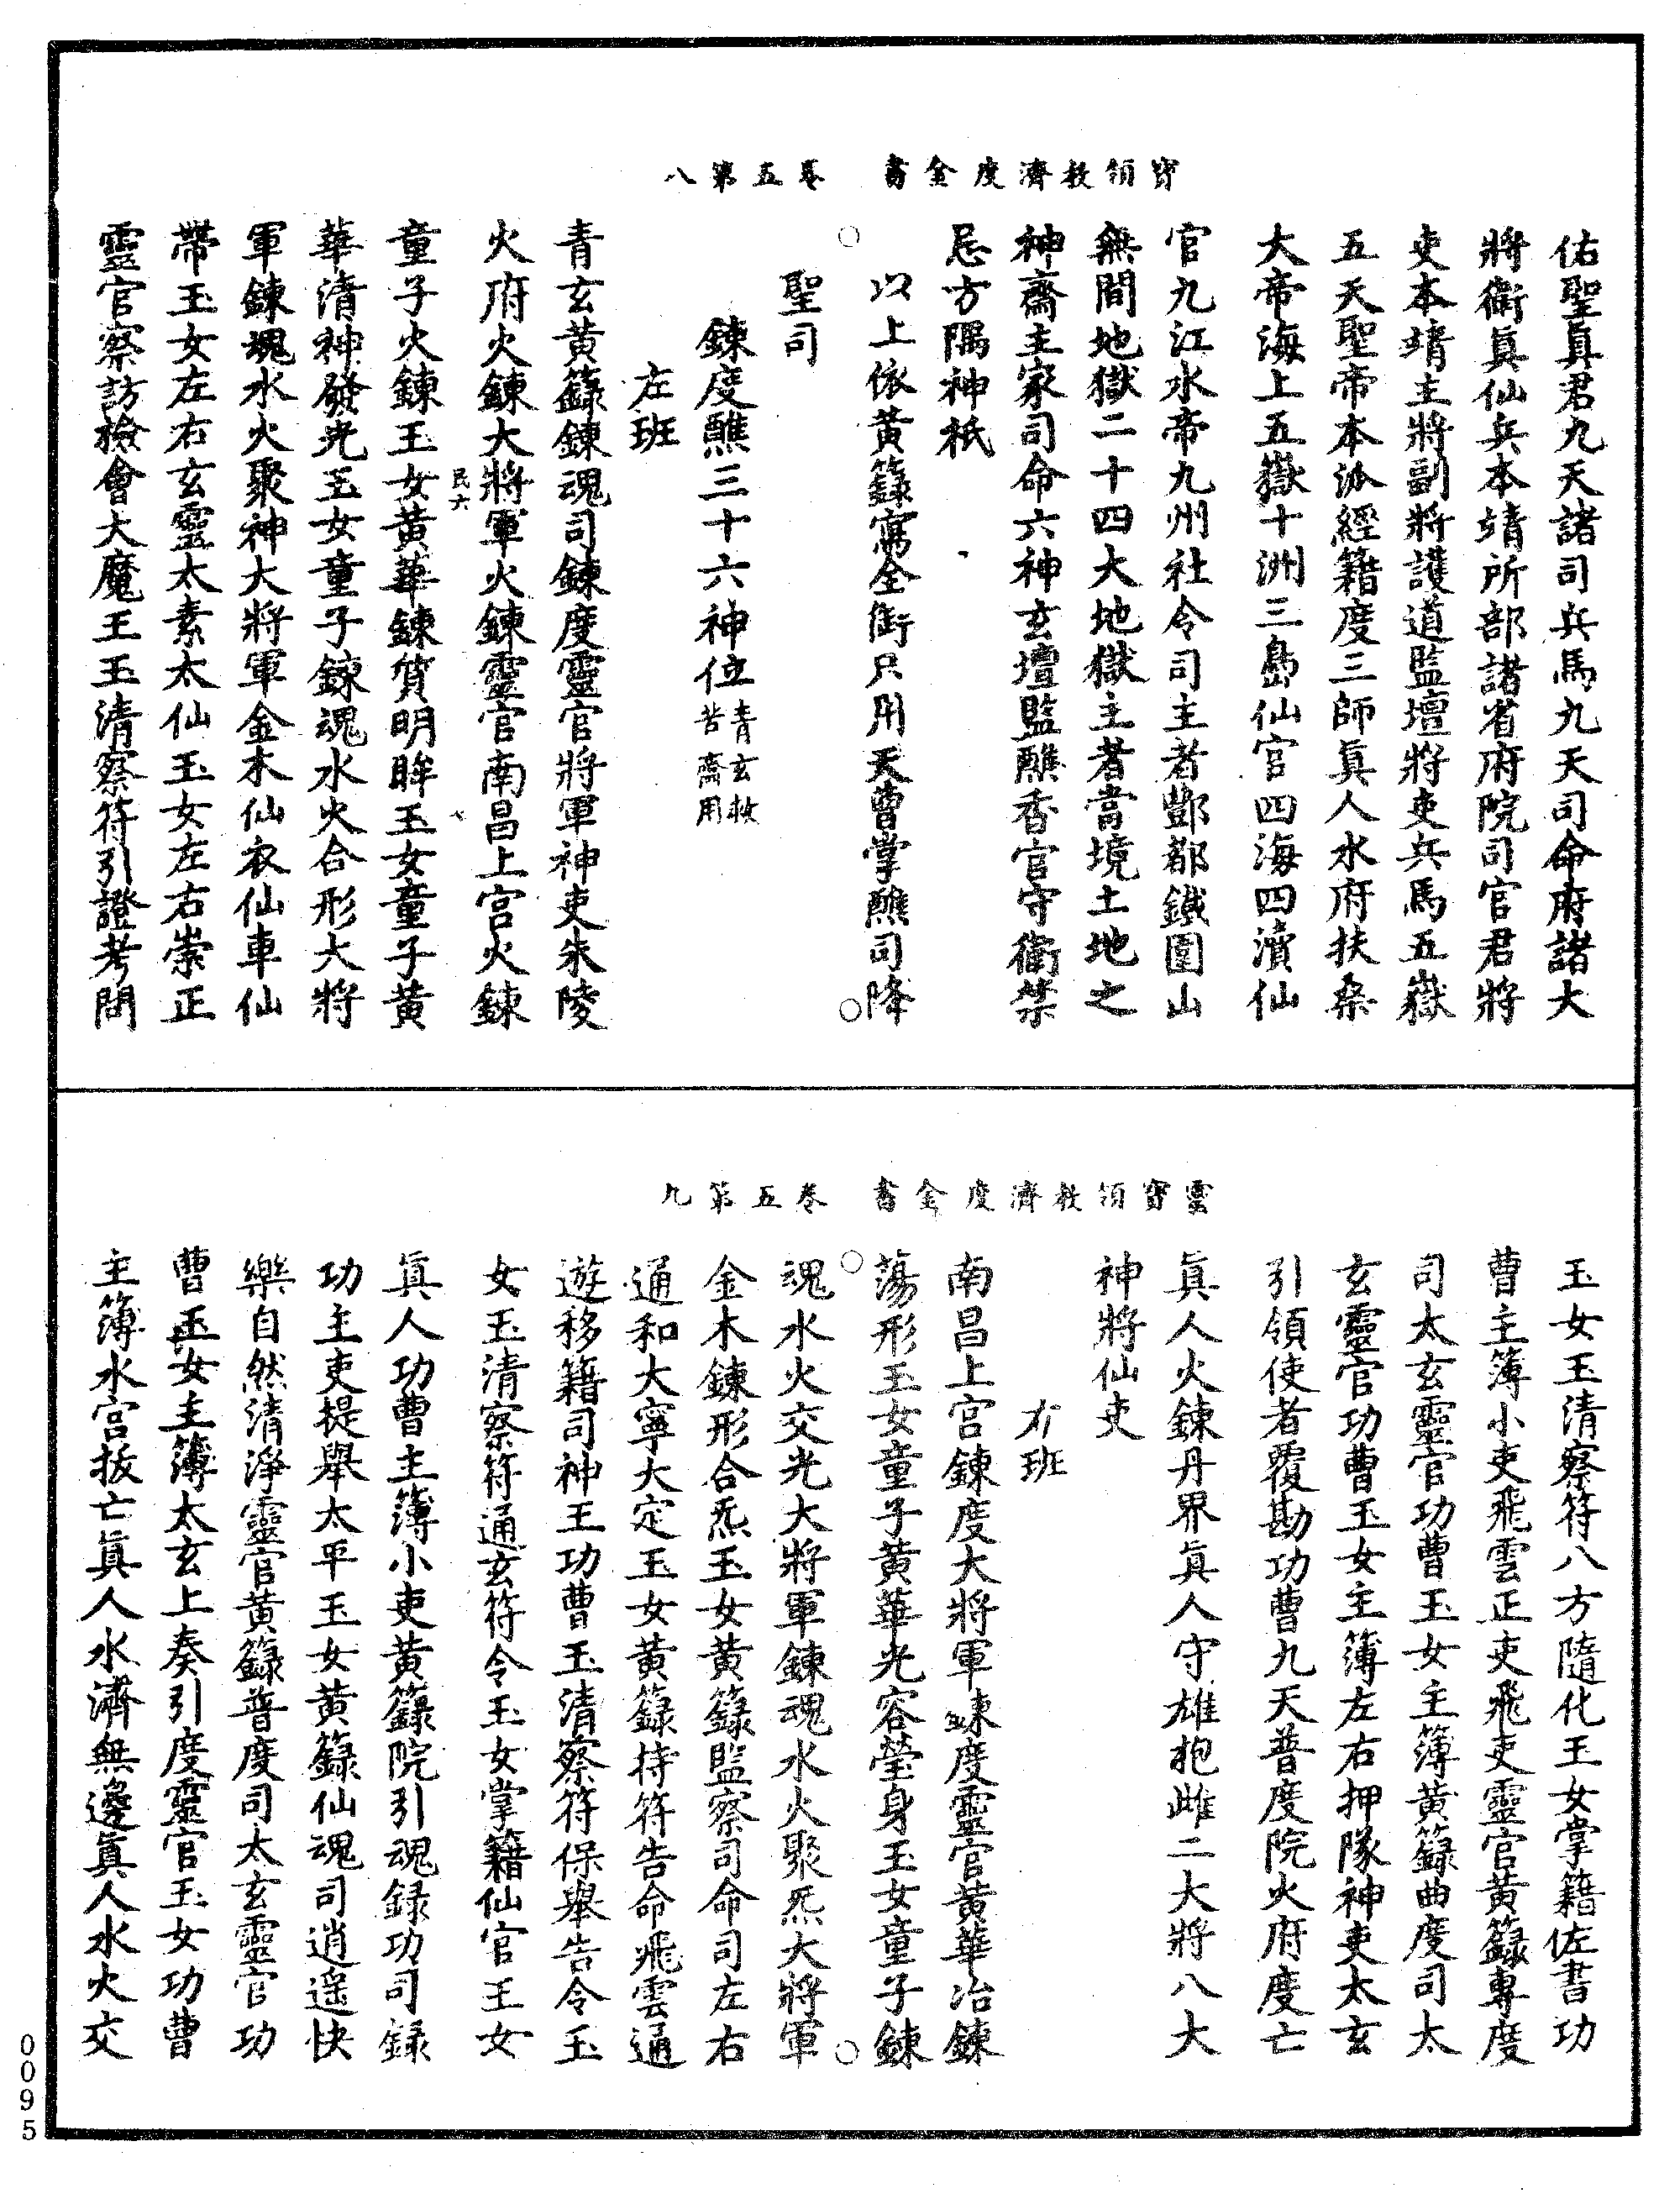 寶領教濟度金書　卷五第八
佑聖眞君九天諸司兵馬九天司命府諸大
將衛眞仙兵本靖所部諸省府院司官君將
吏本靖主將副將護道監壇將吏兵馬五嶽
五天聖帝本派經籍度三師眞人水府扶桑
大帝海上五嶽十洲三島仙官四海四瀆仙
官九江水帝九州社令司主者酆都鐵圍山
無間地獄二十四大地獄主者當境土地之
神齋主家司命六神玄壇監醮香官守衛禁
忌方隅神祇
以上依黃籙寫全銜只用天曹掌醮司降
聖司
鍊度醮三十六神位青玄救苦齋用
左班
青玄黃籙鍊魂司鍊度靈官將軍神吏朱陵
火府火鍊大將軍火鍊靈官南昌上宮火鍊
民六
童子火鍊玉女黃華鍊質明眸玉女童子黃
華清神發光玉女童子鍊魂水火合形大將
軍鍊魂水火聚神大將軍金木仙衣仙車仙
帶玉女左右玄靈太素太仙玉女左右崇正
靈官察訪檢會大魔王玉清察符引證考問
靈寶領教濟度金書　卷五第九
玉女玉清察符八方隨化玉女掌籍佐書功
曹主簿小吏飛雲正吏飛吏靈官黃籙專度
司太玄靈官功曹玉女主簿黃籙曲度司太
玄靈官功曹玉女主簿左右押隊神吏太玄
引領使者覆勘功曹九天普度院火府度亡
眞人火鍊丹界眞人守雄抱雌二大將八大
神將仙吏
右班
南昌上宮鍊度大將軍鍊度靈官黃華冶鍊
蕩形玉女童子黃華光容瑩身玉女童子鍊
魂水火交光大將軍鍊魂水火聚炁大將軍
金木鍊形合炁玉女黃籙監察司命司左右
通和大寧大定玉女黃籙持符告命飛雲通
遊移籍司神王功曹玉清察符保舉告令玉
女玉清察符通玄符令玉女掌籍仙官玉女
眞人功曹主簿小吏黃籙院引魂錄功司錄
功主吏提舉太平玉女黃籙仙魂司逍遙快
樂自然清淨靈官黃籙普度司太玄靈官功
曹玉女主簿太玄上奏引度靈官玉女功曹
主簿水宮拔亡眞人水濟無邊眞人水火交
0095